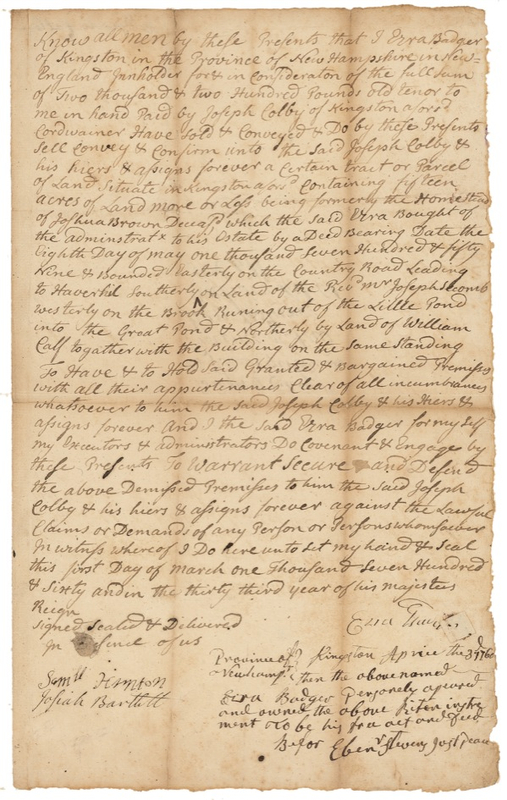 Know all men by these Presents that I Ezra Badger
of Kingston in the Province of New Hampshire in New=
England Innholder for & in Consideraton of the full Sum
of Two thousand & two Hundred Pounds old tenor to
me in hand Paid by Joseph Colby of Kingston afors'd
Cordwainer Have Sold & Conveyed & Do by these Presents
Sell Convey & Confirm unto the Said Joseph Colby &
his hiers & assigns forever a Certain tract or Parcel
of Land Situate in Kingston afors'd Containing fifteen
acres of Land more or Less being formerly the Homestead
of Joshua Brown Deceas'd which the Said Ezra Bought of
the adminstratx to his Estate by a Deed Bearing Date the
Eighth Day of may one thousand Seven Hundred & fifty
Nine & Bounded Easterly on the Country Road Leading
to Haverhil Southerly on Land of the Revd mr Joseph Secomb
westerly on the Brook Runing out of the Little Pond
into the Great Pond & Northerly by Land of William
Calf together with the Building on the Same Standing
To Have & to Hold Said Granted & Bargained Premisses
with all their appurtinances Clear of all incumbrances
whatsoever to him the Said Joseph Colby & his Hiers &
assigns forever And I the Said Ezra Badger for my Self
my Executors & administrators Do Covenant & Engage by
these Presents To Warrant Secure and Defend
the above Demised Premisses to him the Said Joseph
Colby & his hiers & assigns forever against the Lawful
Claims or Demands of any Person or Persons whomsoever
In witness whereof I Do here unto Set my hand & Seal
this first Day of march one Thousand Seven Hundred
& Sixty and in the thirty third year of his majesties
Reign
Signed Sealed & Delivered
In of us
Ezra
Saml
Josiah Bartlett
Province of Kingston the 3d 1760
Newhampr then the above named
Ezra Badger Personely apeared
and owned the above Riten instre
ment to be his free act and deed
Befor Ebenr Stevens Just peace